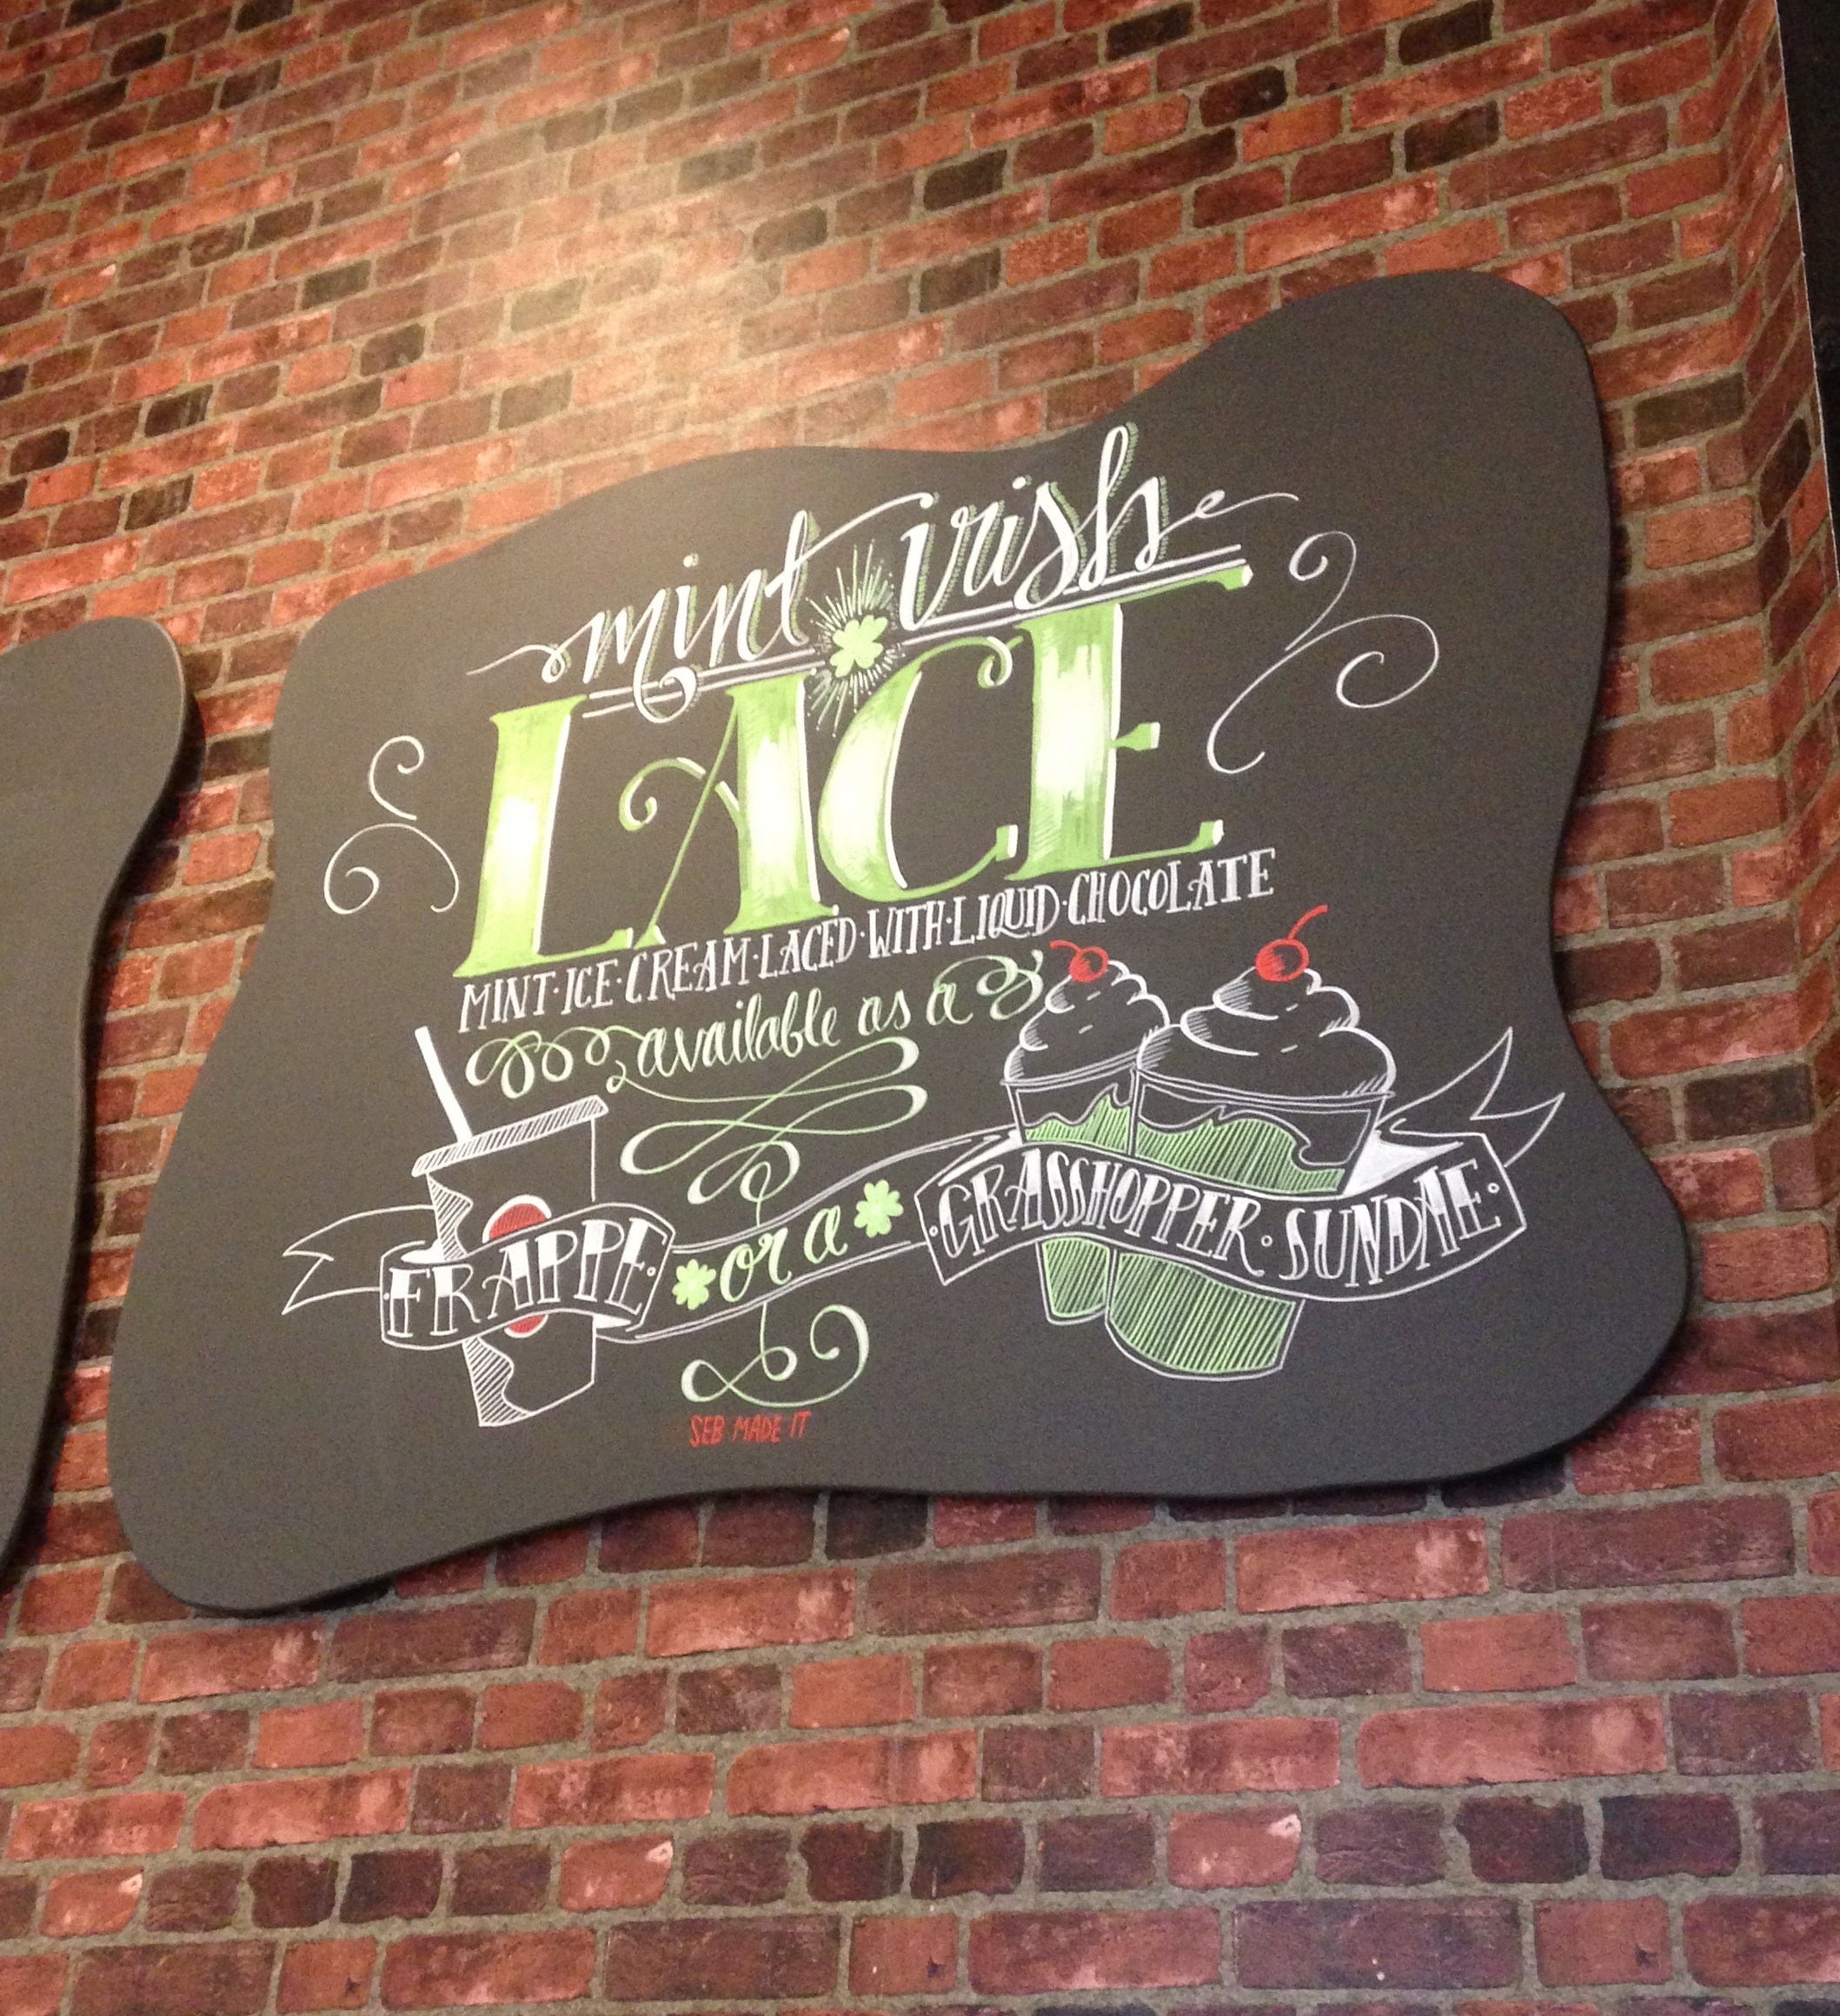 mint irish
LACE
MINT·ICE·CREAM·LACED·WITH·LIQUID·CHOCOLATE
available as a
·FRAPPE· or a ·GRASSHOPPER·SUNDAE·
SEB MADE IT